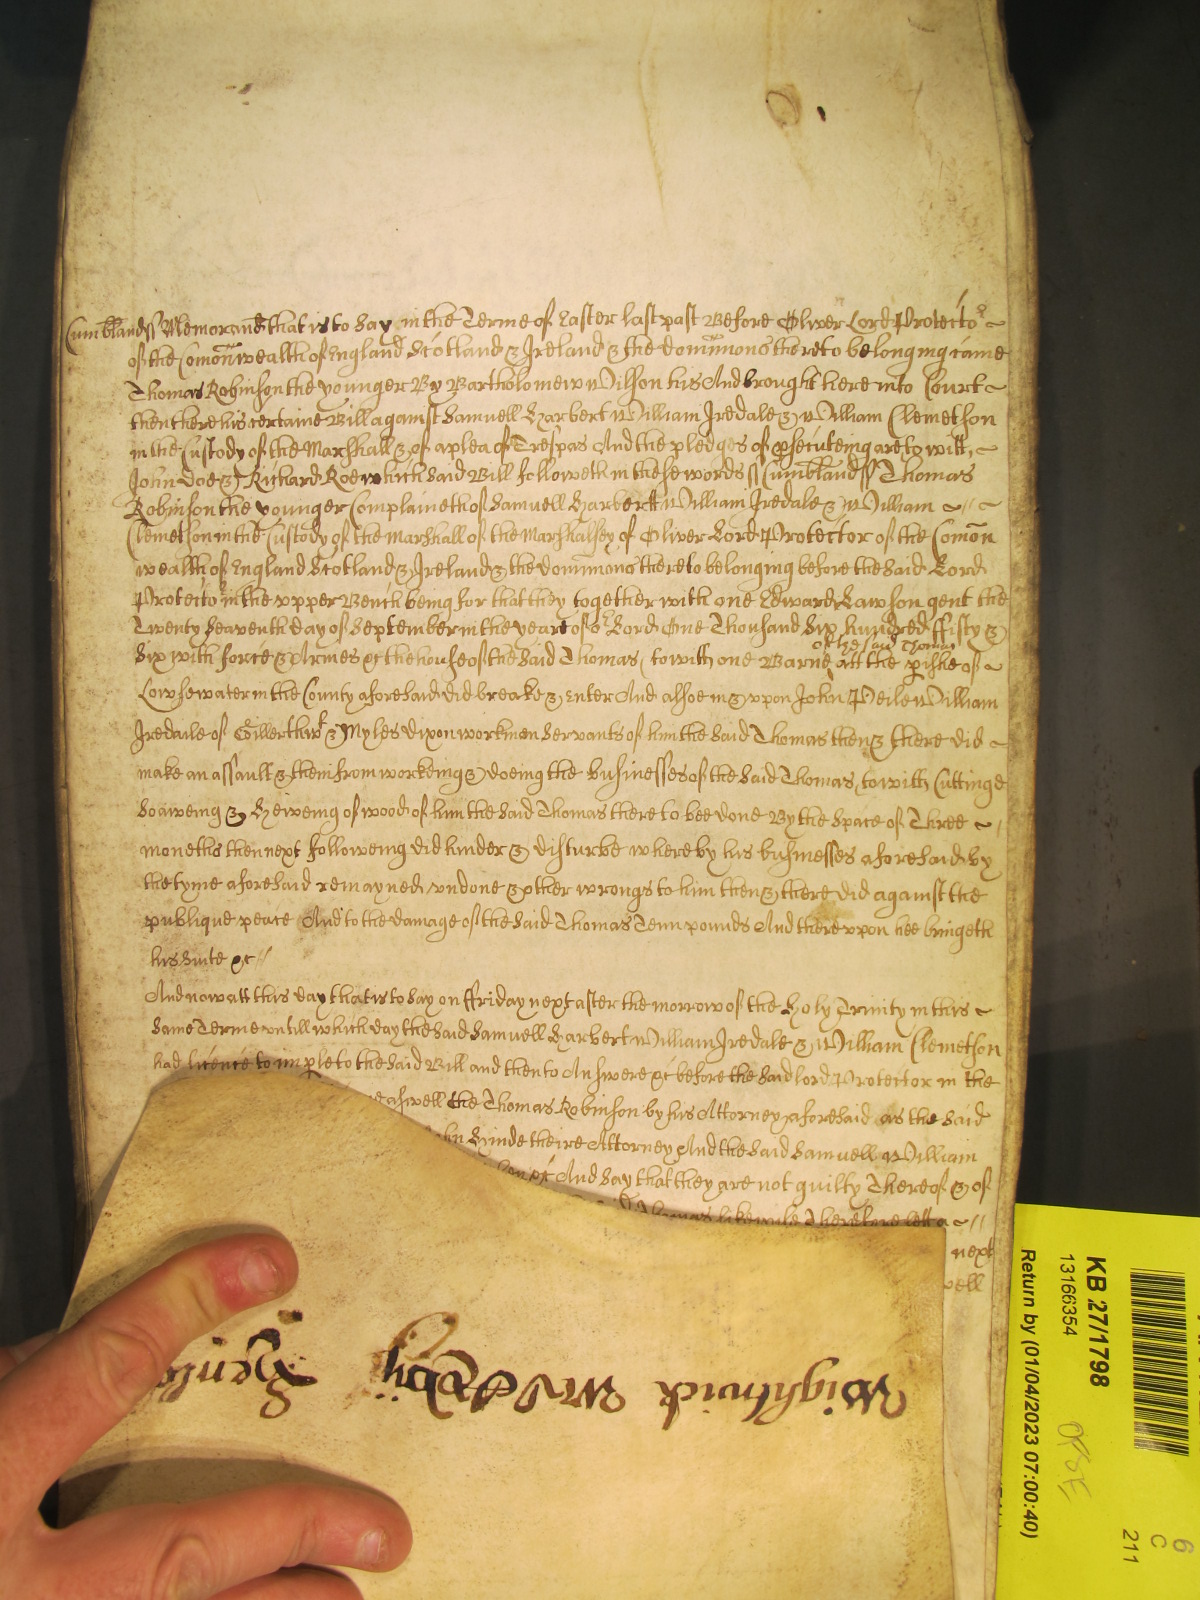 Cumbland ss Memorand that is to say in the Terme of Easter last past Before Oliver Lord Protecto^r
of the Comonwealth of England Scotland & Ireland & the dominions thereto belonging came
Thomas Robinson the younger By Bartholomew Wilson his And brought here into Court
then there his certaine Bill against Samuell Harbert William Iredale & William Clemetson
in the Custody of the Marshall &c of a plea of Trespas And the pledges of psecuteing are to witt,
John Doe & Richard Roe which said Bill followeth in these words ss Cumbland ss Thomas
Robinson the younger Complaineth of Samuell Harbert William Iredale & William
Clemetson in the Custody of the Marshall of the Marshalsey of Oliver Lord Protector of the Comon
wealth of England Scotland & Ireland & the dominions thereto belonging before the said Lord
Protecto^r in the upper Bench being for that they together with one Edward Lawson gent the
Twenty Seaventh day of September in the yeare of o^r Lord One Thousand Six hundred ffifty &
of the said Thomas
Six with force & Armes &c the house of the said Thomas, to witt one Barne att the pishe of
Lowsewater in the County aforesaid did breake & enter And alsoe in & upon John Peile William
Iredaile of & Myles Dixon workmen servants of him the said Thomas then & there did
make an assault & them from workeing & doeing the businesses of the said Thomas, to witt Cuttinge
Saweing & Heweing of wood of him the said Thomas there to bee done By the space of Three
moneths then next followeing did hinder & disturbe whereby his businesses aforesaid by
the tyme aforesaid remayned undone & other wrongs to him then & there did against the
publique peace And to the damage of the said Thomas Tenn pounds And thereupon hee bringeth
his suite &c
And now att this day that is to say on ffriday next after the morrow of the Holy Trinity in this
same Terme untill which day the said Samuell Harbert William Iredale & William Clemetson
had licence to imple to the said Bill and then to Answere &c before the said lord Protector in the
aswell the Thomas Robinson by his Attorney aforesaid as the said
Hinde theire Attorney And the said Samuell William
&c And say that they are not guilty Thereof & of
Thomas likewise Therefore lett a
next
Wightwick
KB 27/1798
13166354
Return by (01/04/2023 07:00:40)
6
C
211